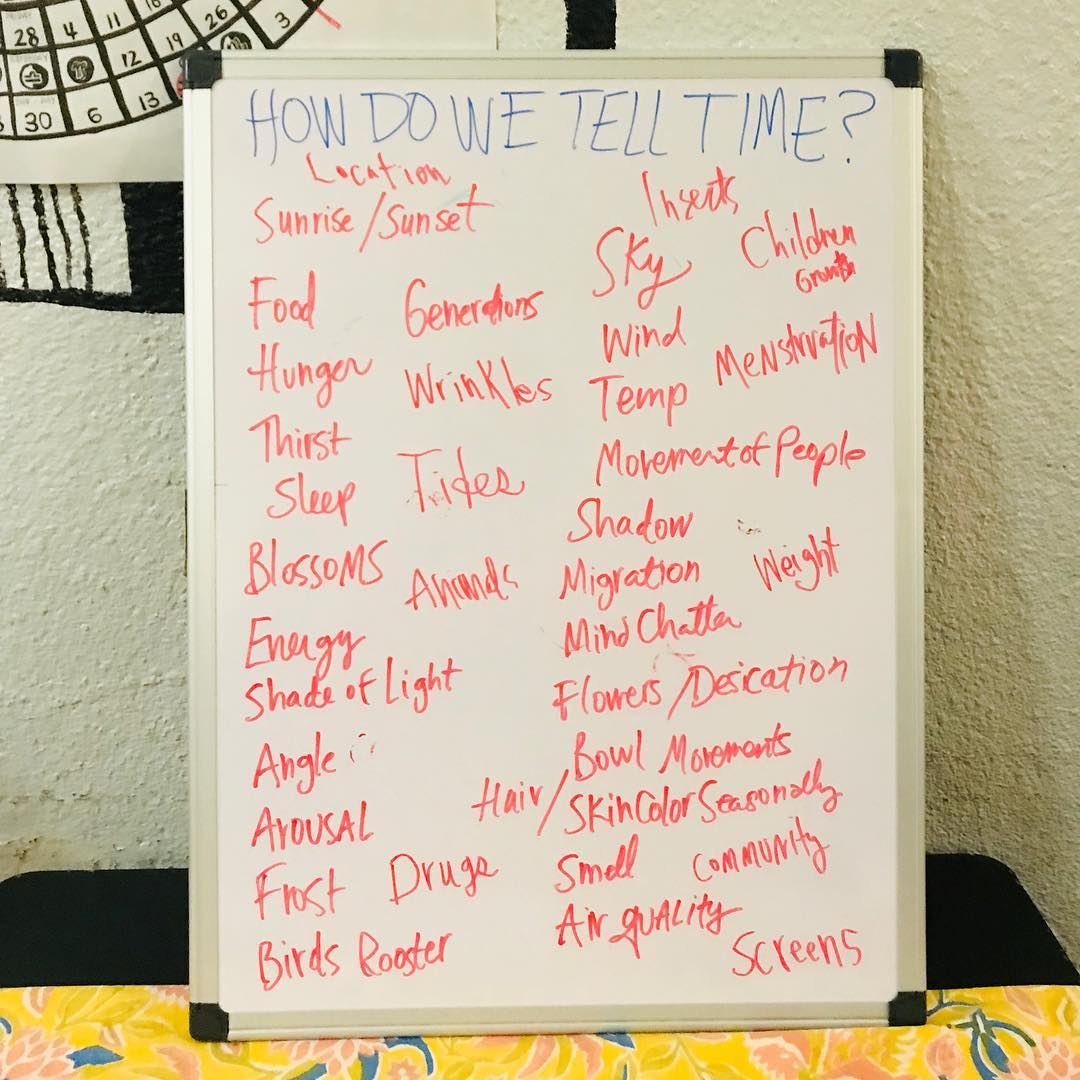 28 4 11 18 26 3
12 19
30 6 13
HOW DO WE TELL TIME?
Location
Sunrise/Sunset
Food
Hunger
Thirst
Sleep
Blossoms
Energy
Shade of Light
Angle
Arousal
Frost
Birds Rooster
Generations
Wrinkles
Tides
Animals
Drugs
Insects
Sky
Children
Growth
Wind
Menstruation
Temp
Movement of People
Shadow
Migration
Weight
Mind Chatter
Flowers/Desication
Bowl Movements
Hair/Skin Color Seasonally
Smell
Community
Air quality
Screens